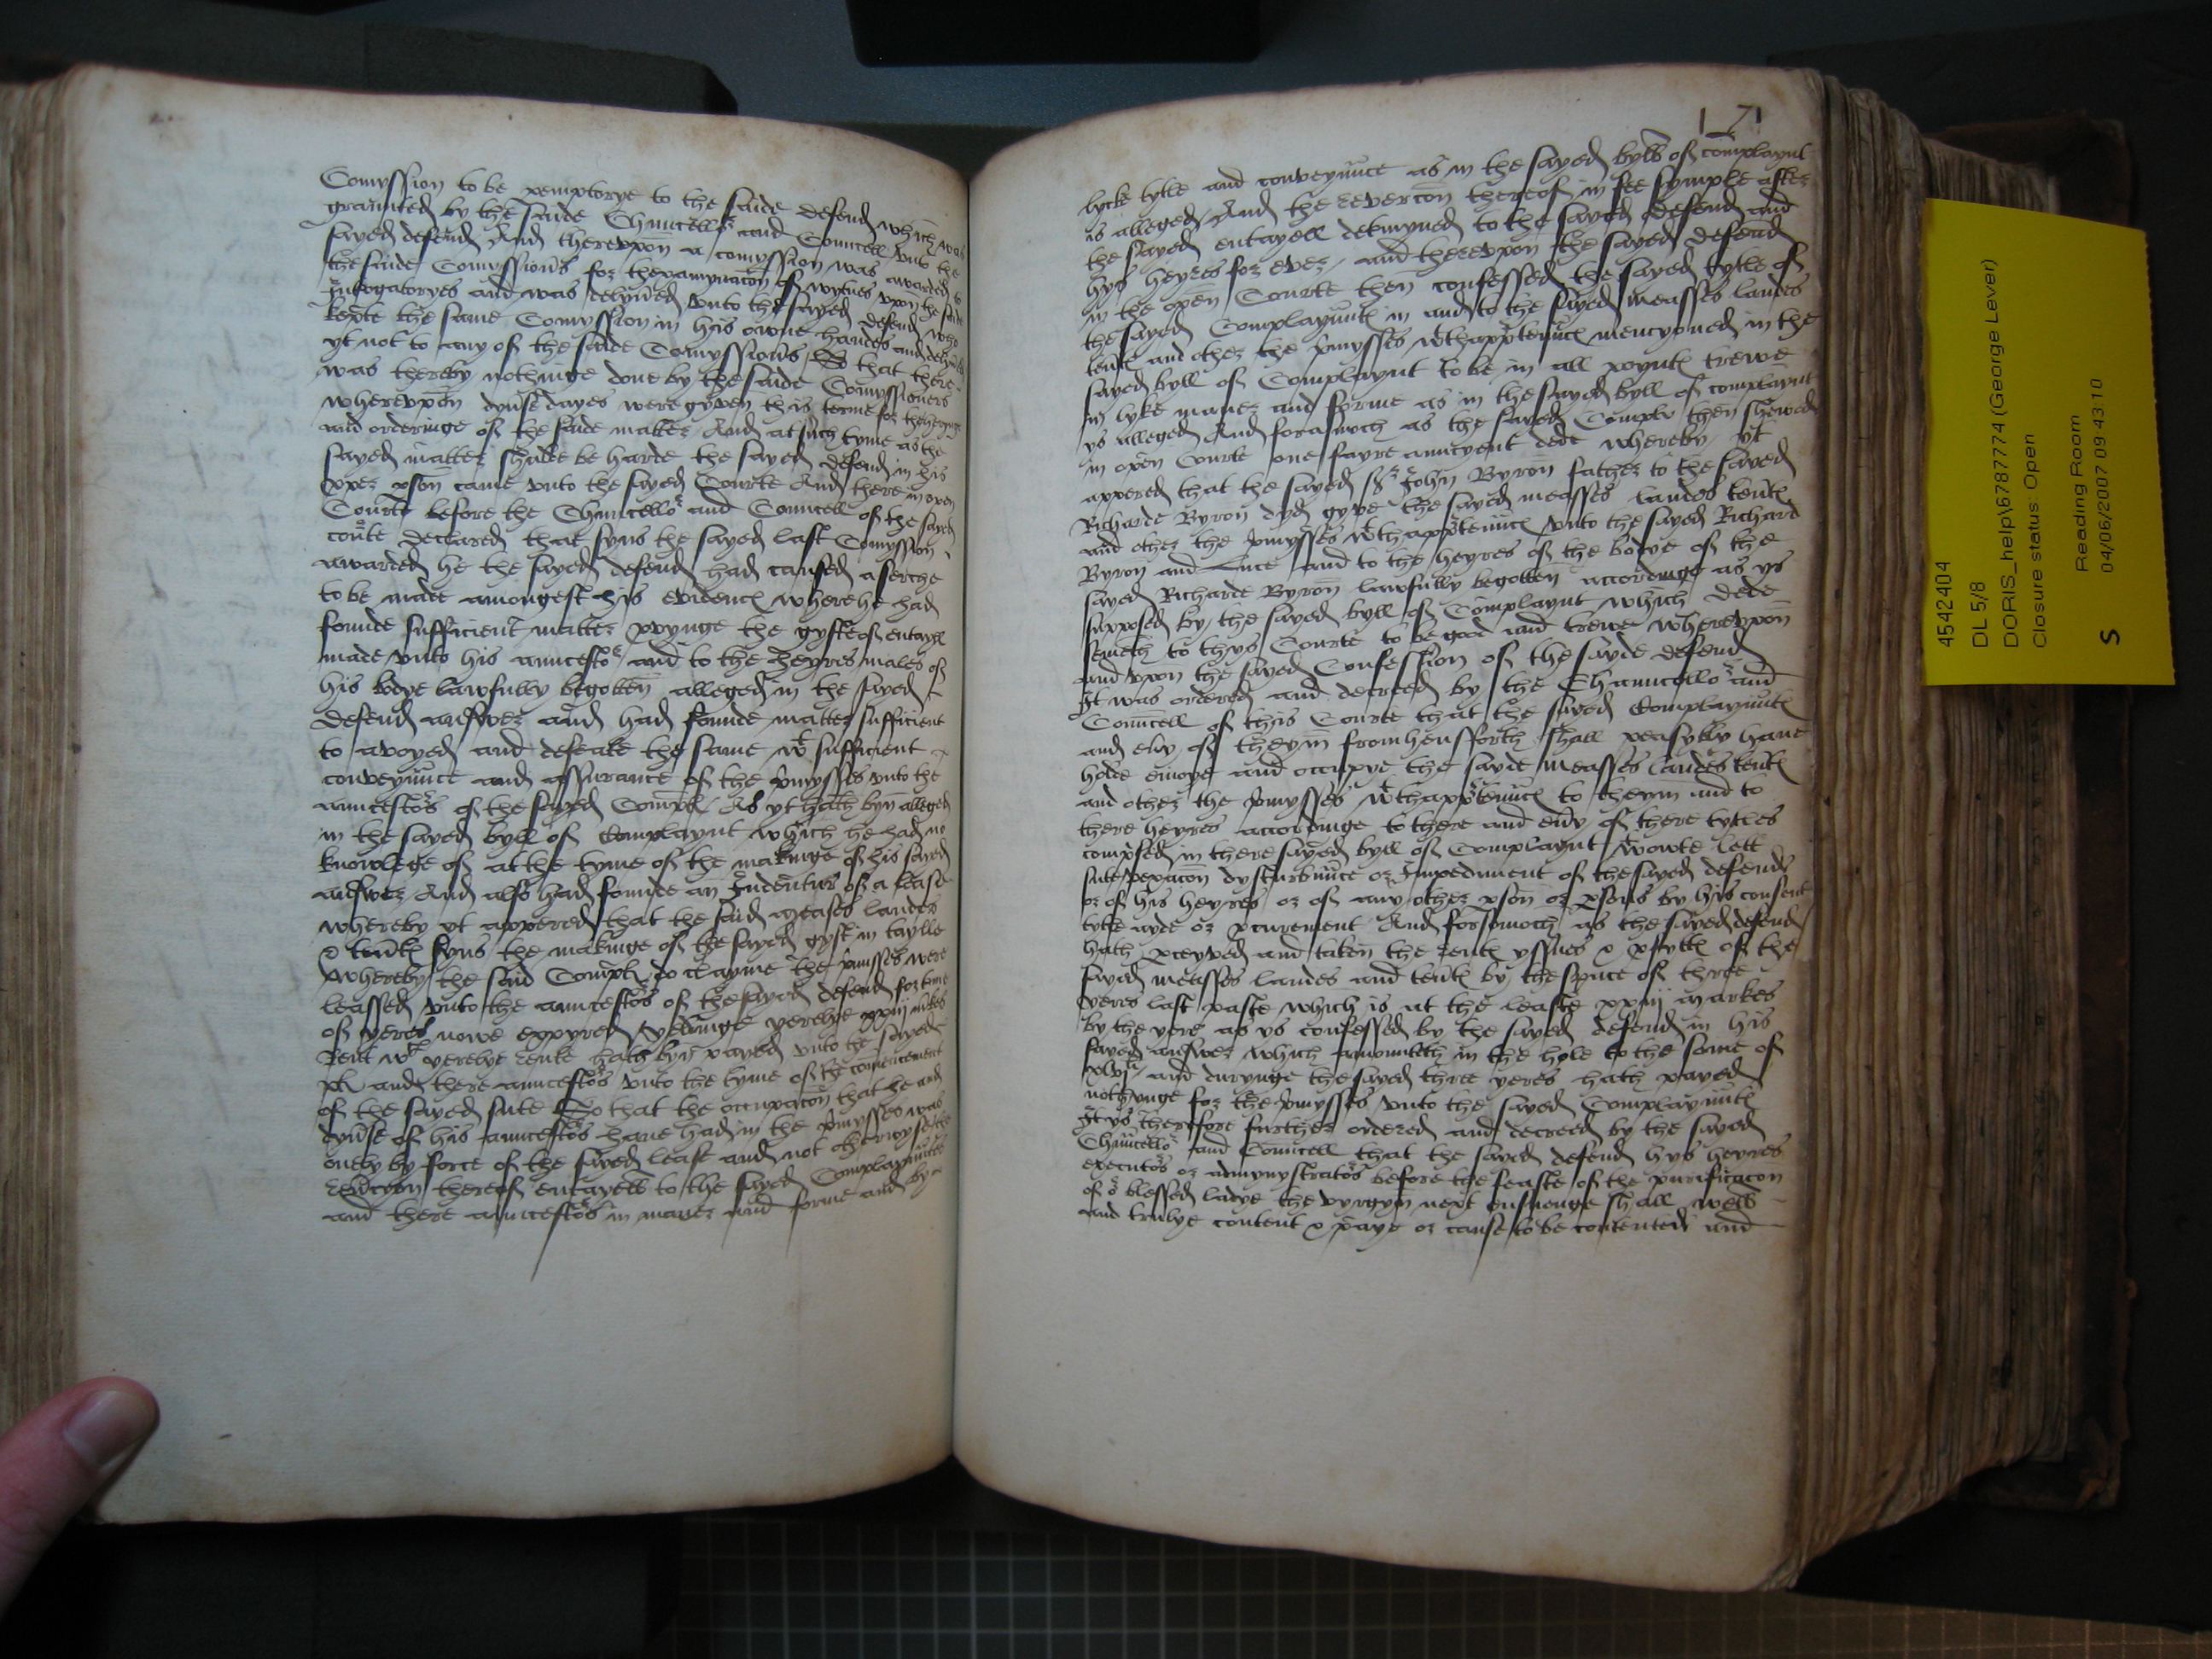 Comyssion to be pemptorye to the saide defend which was
graunted by the saide Chauncellor and Councell vnto the
sayed defend And therevpon a comyssion was awarded to
the saide Comyssions for thexamynacon of wytnes vpon the saide
Introgatoryes and was delyued vnto the sayed defend who
kepte the same Comyssion in his owne handes and delyued
yt not to any of the saide Comyssions So that there
was thereby nothinge done by the saide Comyssioners
wherevpon dyuse dayes were gyven this terme for the heryng
and orderinge of the saide matter And at such tyme as the
sayed matter shulde be harde the sayed defend in his
pper pson came vnto the sayed Courte And there in open
Courte before the Chauncellor and Councell of the sayed
courte declared that syns the sayed last Comyssion
awarded he the sayed defend had caused a serche
to be made amongest his evidenc where he had
founde sufficient matter pvynge the gyfte of entayll
made vnto his auncestor and to the heyres males of
his bodye lawfully begotten alleged in the sayed
defend answer and had founde matter sufficient
to avoyed and defeate the same wt sufficient
conveyaunce and assurance of the pmysses vnto the
auncestors of the sayed Compl As yt hath byn alleged
in the sayed byll of Complaynt which he had no
knowlege of at the tyme of the makinge of his sayed
answer And also had founde an Indentur of a lease
whereby yt appered that the said meases landes
& tents syns the makinge of the sayed gyft in taylle
whereby the said Compl do clayme the pmisses were
leassed vnto the auncestors of the sayed defend for terme
of yeres nowe expyred yeldinge yerelye xxiij mrkes
Rent wch yerelye rente hath byn payed vnto the sayed
pl and there auncestors vnto the tyme of the comencement
of the sayed sute So that the occupacon that he and
dyuse of his auncestors haue had in the pmysses was
onely by force of the sayed lease and not otherwyse the
reuercyon thereof entayelld to the sayed Complaynntes
and there auncestors in maner and forme and by
171
lycke tytle and conveyaunce as in the sayed bylle of complaynt
is alleged And the revercon thereof in fee symple after
the sayed entayell detmyned to the sayed defend and
hys heyres for ever and therevpon the sayed defend
in the open Courte then confessed the sayed tytle of
the sayed Complaynnts in and to the sayed meases landes
tents and other the pmysses wthappurtenuncs mencyoned in the
sayed byll of Complaynt to be in all poynts trewe
in lyke maner and forme as in the sayed byll of complaynt
ys alleged And forasmoch as the sayed Compl then shewed
in open Courte one fayre auncyent dede whereby yt
appered that the sayed Sr John Byron father to the sayed
Richarde Byron dyd gyve the sayed meases landes tents
and other the pmysses wthappurtenuncs vnto the sayed Richard
Byron and and to the heyres of the bodye of the
sayed Richarde Byron lawfully begotten accordinge as ys
supposed by the sayed byll of Complaynt which dede
semeth to thys Courte to be good and trewe wherevpon
and vpon the sayed Confession of the sayde defend
It was ordered and decreed by the Chauncellor and
Councell of this Courte that the sayed Complaynnts
and euy of theym from hensforth shall peasybly haue
holde enioye and occupye the sayde meases landes tents
and other the pmysses wthappurtenuncs to theym and to
there heyres accordinge to there and euy of there tytles
comprised in there sayed byll of Complaynt wtowte lett
sute vexacon dysturbunce or Impedyment of the sayed defend
or of his heyres or of any other pson or psons by his consent
tytle ayde or pcurement And forsomoch as the sayed defend
hath pceyved and taken the rents yssues & pfytts of the
sayed meases landes and tents by the space of three
yeres last paste which is at the leaste xxiij markes
by the yere as ys confessed by the sayed defend in his
sayed answer which amountith in the hole to the some of
xlvj li and durynge the sayed three yeres hath payed
nothynge for the pmysses vnto the sayed Complaynnts
It ys therefore further ordered and decreed by the sayed
Chauncellor and Councell that the sayed defend hys heyres
executors or admynystrators before the feaste of the purificacon
of or blessed ladye the vyrgyn next ensuenge shall well
and trulye content & paye or cause to be contented and
4542404
DL 5/8
DORIS_help\6787774 (George Lever)
Closure status: Open
Reading Room
S 04/06/2007 09:43:10